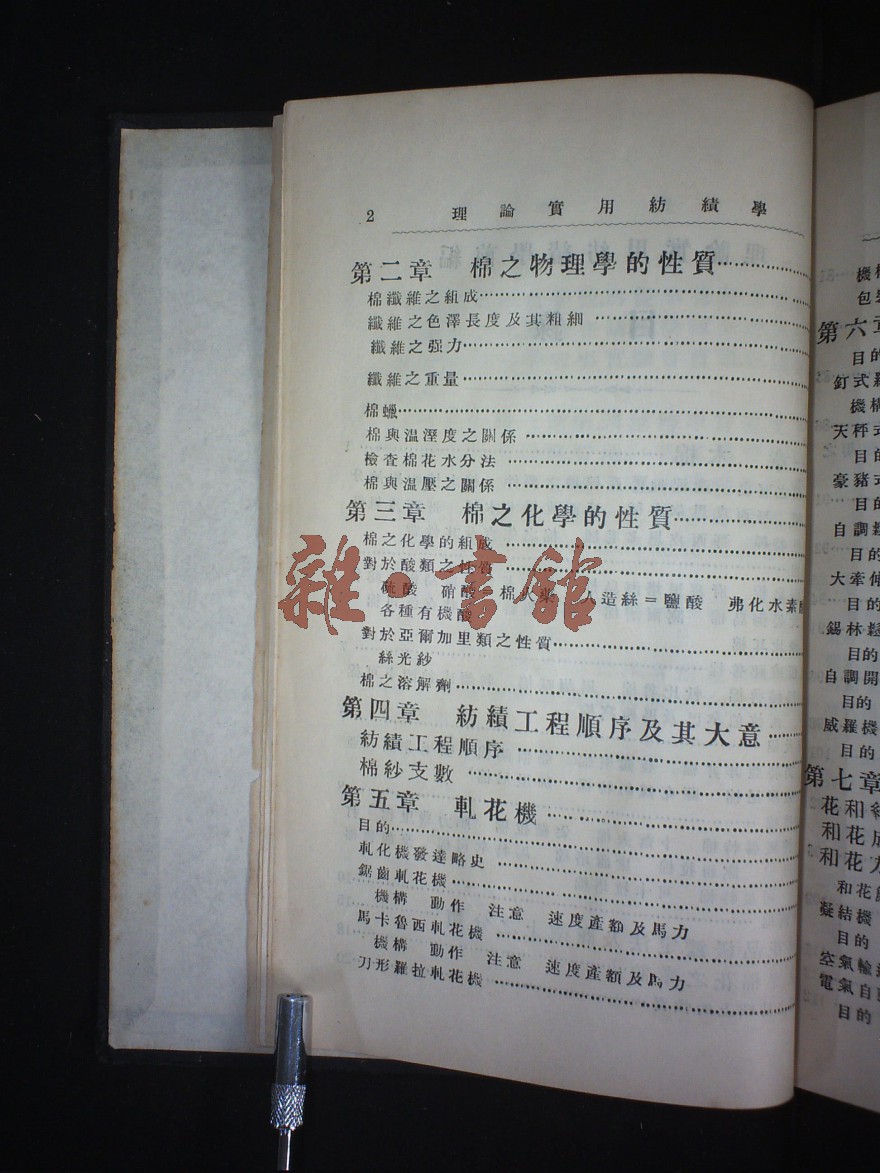 2 理論實用紡績學
第二章 棉之物理學的性質
棉纖維之組成
纖維之色澤長度及其粗細
纖維之强力
纖維之重量
棉蠟
棉與溫溼度之關係
檢查棉花水分法
棉與溫壓之關係
第三章 棉之化學的性質
棉之化學的組成
對於酸類之性質
硫酸 硝酸=棉火藥 人造絲=鹽酸 弗化水素
各種有機酸
對於亞爾加里類之性質
絲光紗
棉之溶解劑
第四章 紡績工程順序及其大意
紡績工程順序
棉紗支數
第五章 軋花機
目的
軋化機發達略史
鋸齒軋花機
機構 動作 注意 速度產額及馬力
馬卡魯西軋花機
機構 動作 注意 速度產額及馬力
刀形羅拉軋花機
雜·書館
機
包
第六
目的
釘式
機構
天秤式
目的
豪豬式
目的
自調
目的
大牽伸
目的
錫林
目的
自調開
目的
威羅機
目的
第七章
花和
和花成
和花方
和花
凝結機
目的
空氣輸
電氣自
目的